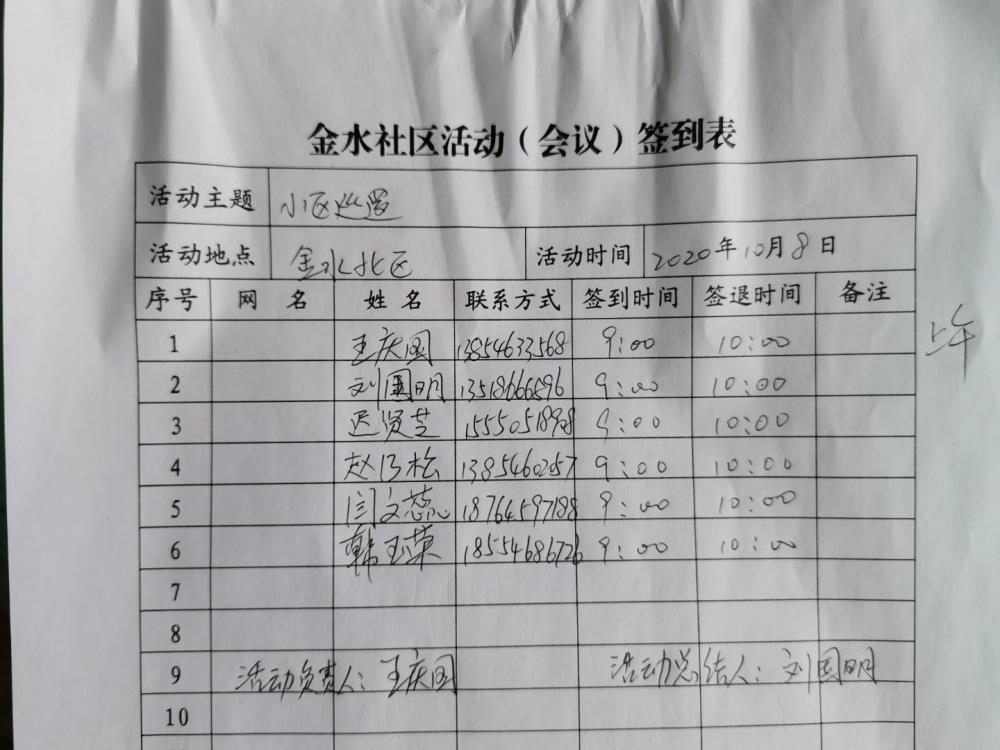 金水社区活动（会议）签到表
活动主题 小区巡逻
活动地点 金水北区 活动时间 2020年10月8日
序号 网 名 姓 名 联系方式 签到时间 签退时间 备注
1 王庆国 13854633568 9:00 10:00
上午
2 刘国明 13518666596 9:00 10:00
3 迟贤芝 9:00 10:00
4 赵乃松 9:00 10:00
5 闫文蕊 18764597188 9:00 10:00
6 韩玉荣 18554686726 9:00 10:00
7
8
9 活动负责人：王庆国 活动总结人：刘国明
10